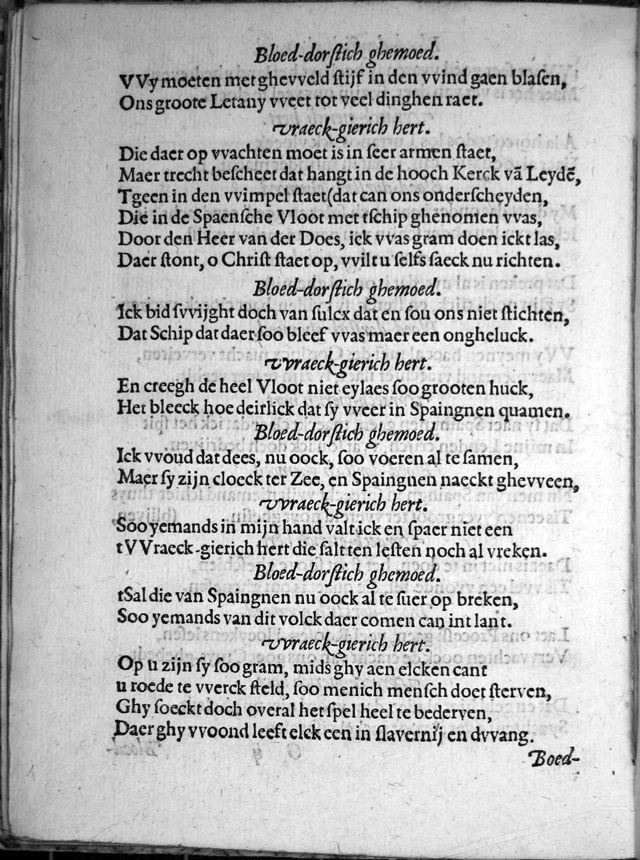 Bloed-dorſtich ghemoed.
VVy moeten met ghevveld ſtijf in den vvind gaen blaſen,
Ons groote Letany vveet tot veel dinghen raet.
vraeck-gierich hert.
Die daer op vvachten moet is in ſeer armen ſtaet,
Maer trecht beſcheet dat hangt in de hooch Kerck vã Leydẽ,
Tgeen in den vvimpel ſtaet(dat can ons onderſcheyden,
Die in de Spaenſche Vloot met tſchip ghenomen vvas,
Door den Heer van der Does, ick vvas gram doen ickt las,
Daer ſtont, o Chriſt ſtaet op, vvilt u ſelfs ſaeck nu richten.
Bloed-dorſtich ghemoed.
Ick bid ſvvijght doch van ſulcx dat en ſou ons niet ſtichten,
Dat Schip dat daer ſoo bleef vvas maer een ongheluck.
vvraeck-gierich hert.
En creegh de heel Vloot niet eylaes ſoo grooten huck,
Het bleeck hoe deirlick dat ſy vveer in Spaingnen quamen.
Bloed-dorſtich ghemoed.
Ick vvoud dat dees, nu oock, ſoo voeren al te ſamen,
Maer ſy zijn cloeck ter Zee, en Spaingnen naeckt ghevveen,
vvraeck-gierich hert.
Soo yemands in mijn hand valt ick en ſpaer niet een
tVVraeck-gierich hert die ſalt ten leſten noch al vreken.
Bloed-dorſtich ghemoed.
tSal die van Spaingnen nu oock al te ſuer op breken,
Soo yemands van dit volck daer comen can int lant.
vvraeck-gierich hert.
Op u zijn ſy ſoo gram, mids ghy aen elcken cant
u roede te vverck ſteld, ſoo menich menſch doet ſterven,
Ghy ſoeckt doch overal het ſpel heel te bederven,
Daer ghy vvoond leeft elck een in ſlavernij en dvvang.
Boed-